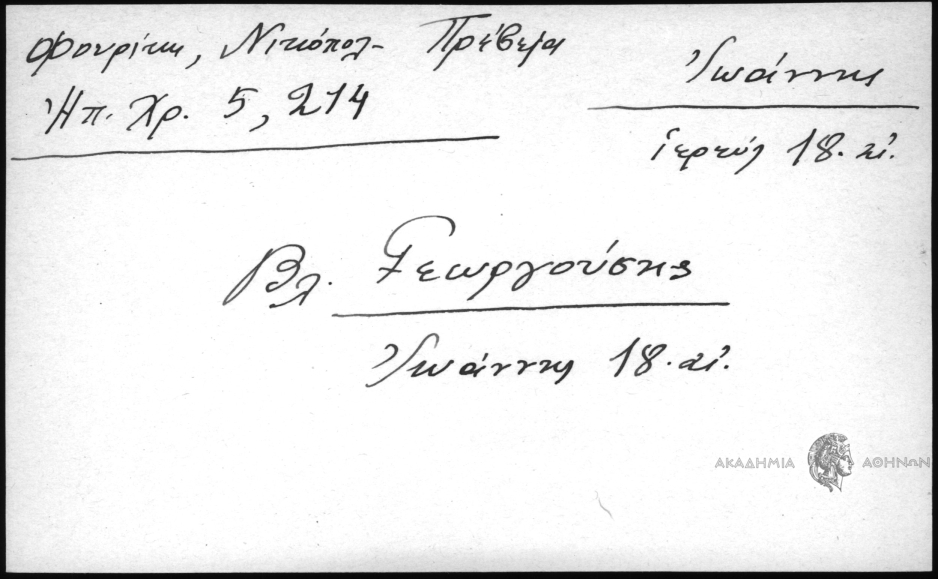 Φουρίκη, Νικόπολ- Πρέβεζα
Ἠπ. Χρ. 5, 214
Ἰωάννης
ἱερεύς 18. αἰ.
Βλ. Γεωργούσης
Ἰωάννης 18. αἰ.
ΑΚΑΔΗΜΙΑ ΑΘΗΝΩΝ